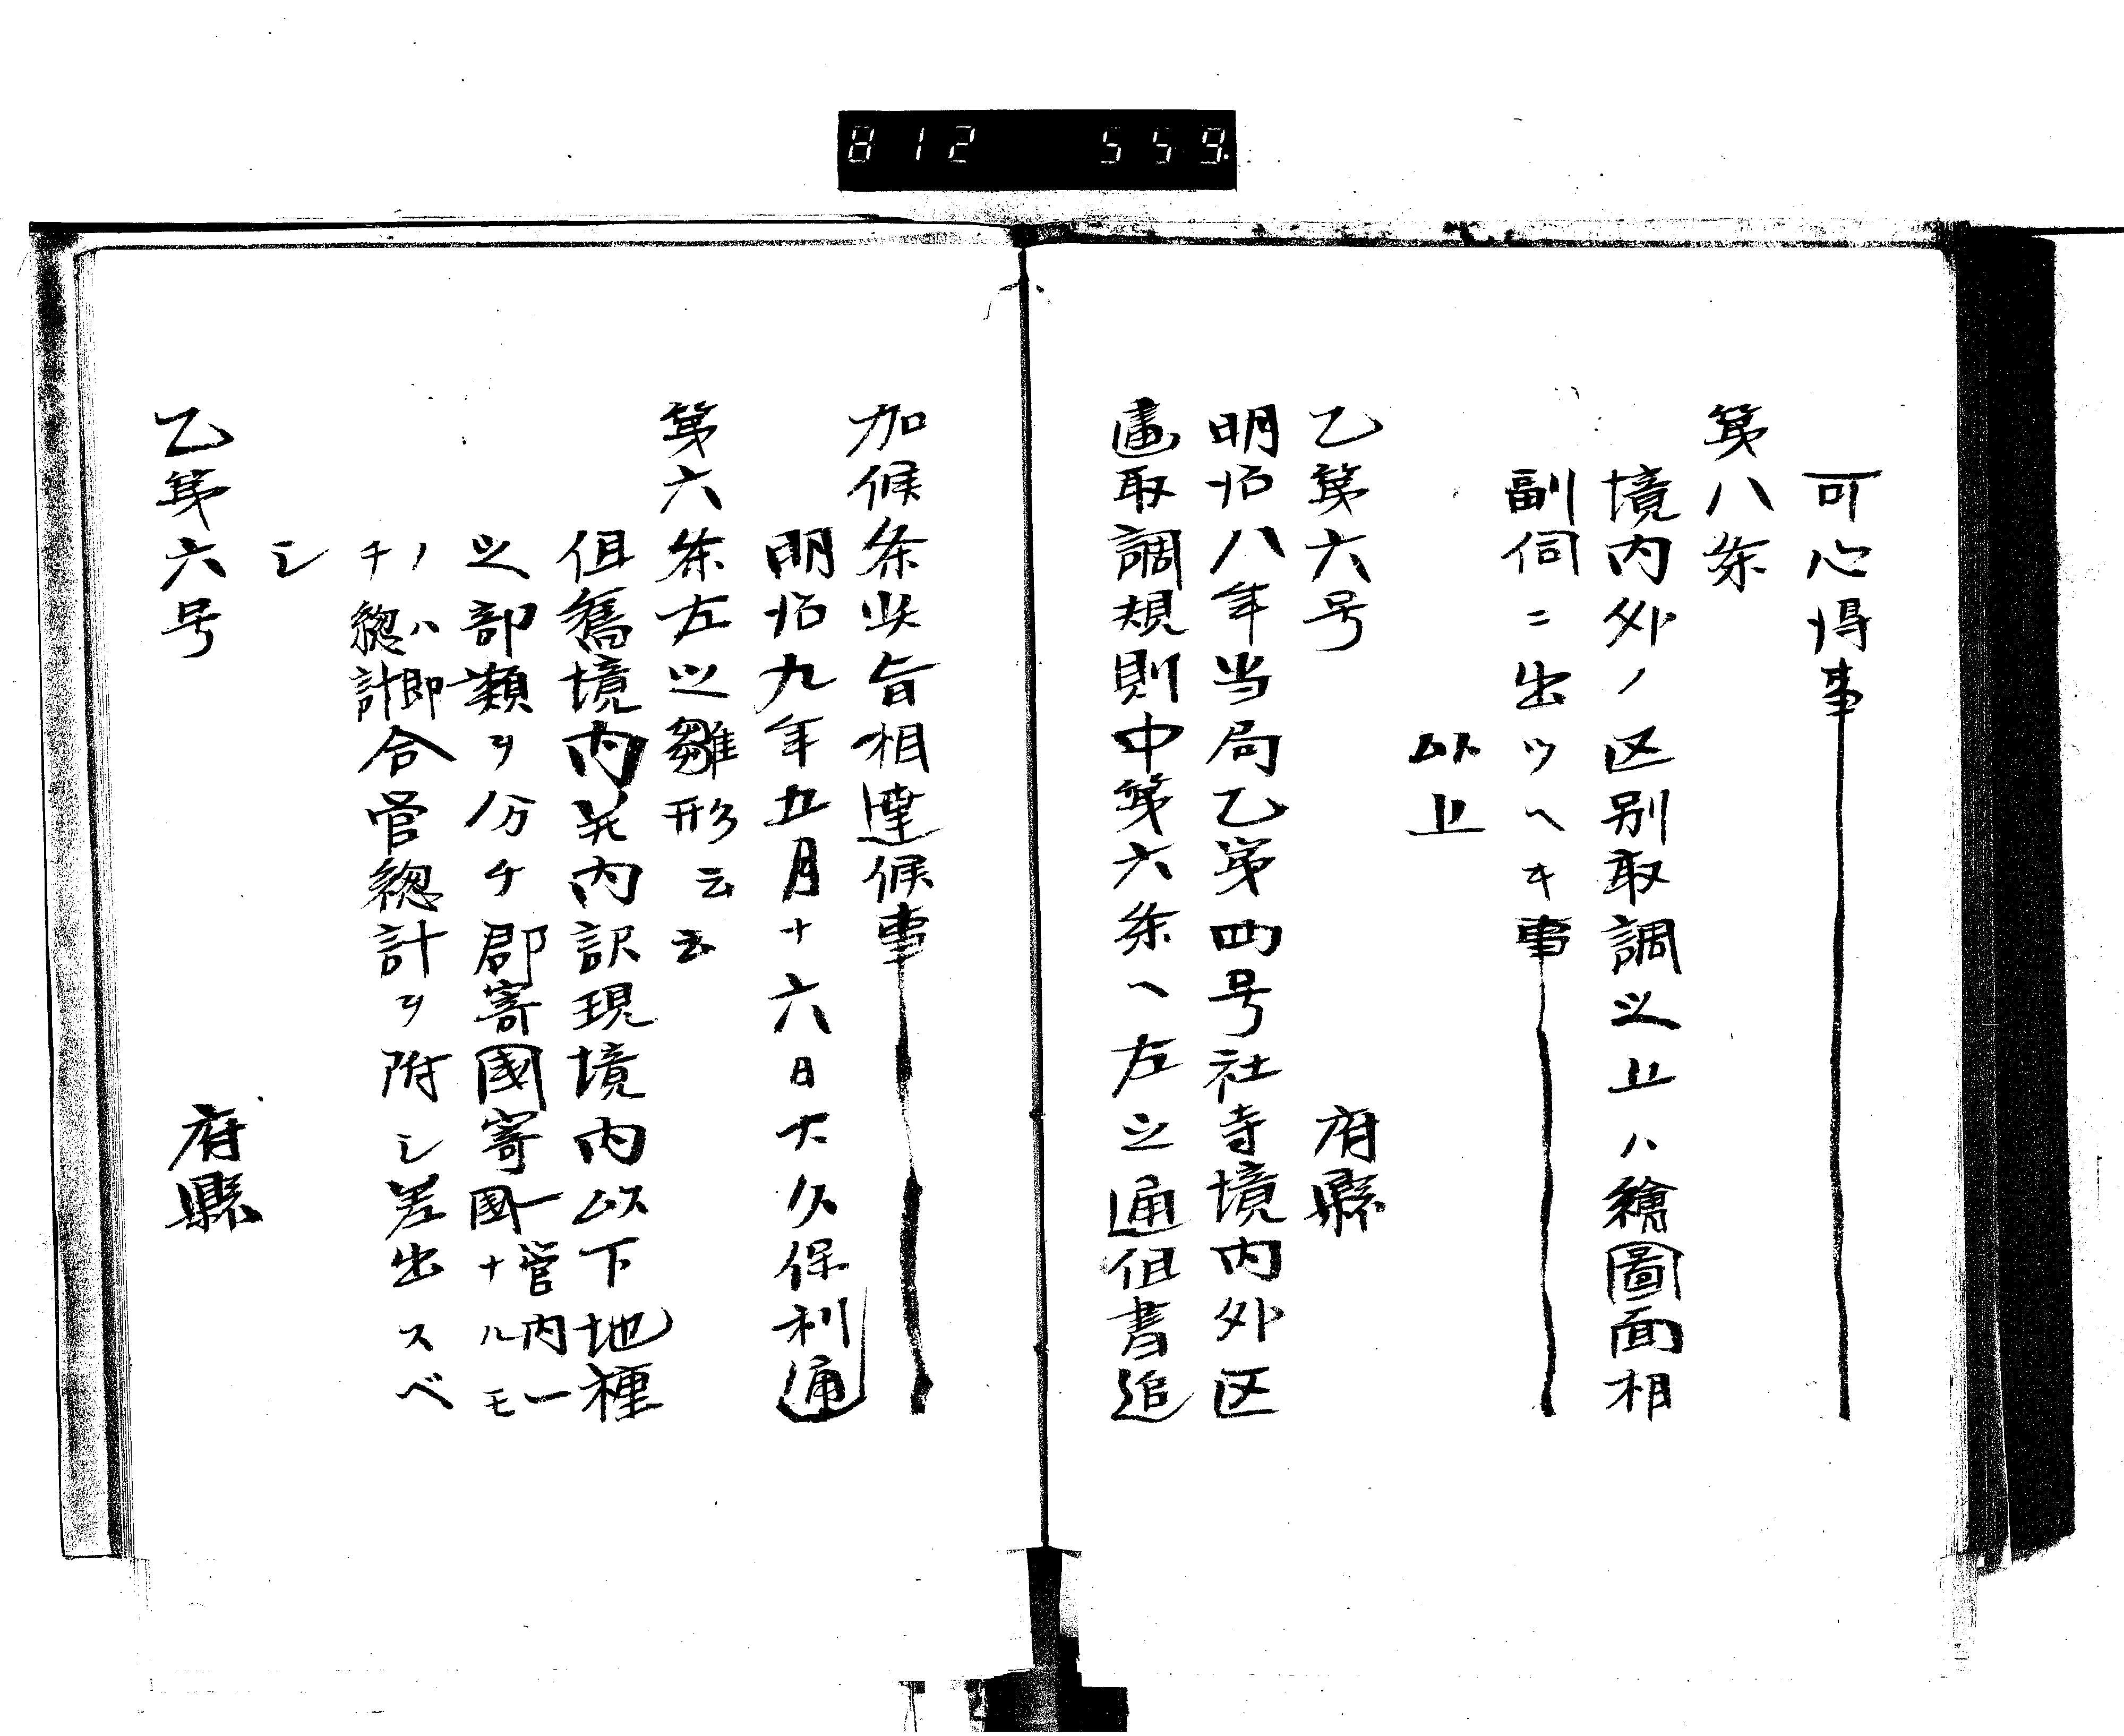 812 559.
可心得事
第八条
境内外ノ区別取調之上ハ繪圖面相
副伺ニ出ツヘキ事
以上
乙第六号 府縣
明治八年当局乙第四号社寺境内外区
畫取調規則中第六条ヘ左之通但書追
加候条此旨相達候事
明治九年五月十六日大久保利通
第六条左之雛形云云
但舊境内共内訳現境内以下地種
之部類ヲ分チ郡寄國寄一管内一
國ナルモ
ノハ即
チ總計合管總計ヲ附シ差出スベ
シ
乙第六号 府縣